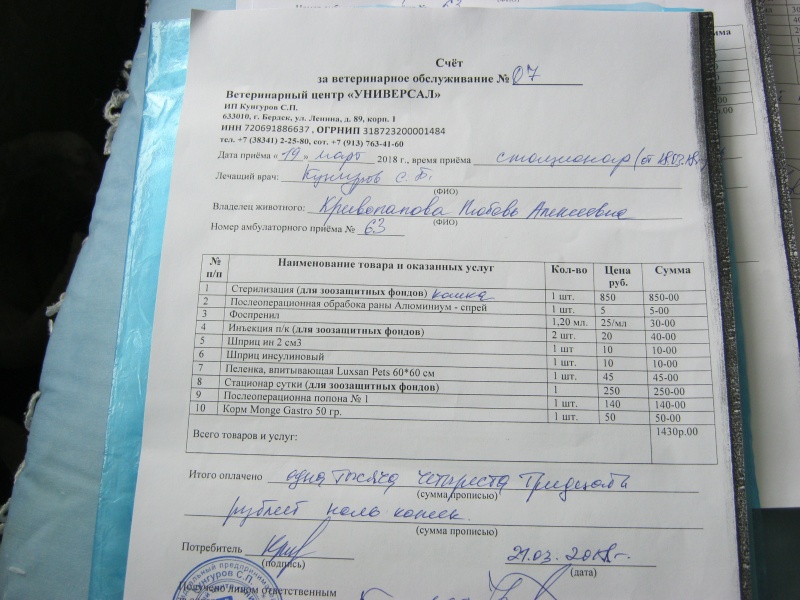 Счёт
за ветеринарное обслуживание № 07
Ветеринарный центр «УНИВЕРСАЛ»
ИП Кунгуров С.П.
633010, г. Бердск, ул. Ленина, д. 89, корп. 1
ИНН 720691886637 , ОГРНИП 318723200001484
тел. +7 (38341) 2-25-80, сот. +7 (913) 763-41-60
Дата приёма « 19 » март 2018 г., время приёма стационар (от 18.03.18г)
Лечащий врач: Кунгуров С. П.
(ФИО)
Владелец животного: Кривопапова Любовь Алексеевна
(ФИО)
Номер амбулаторного приёма № 63
№ п/п Наименование товара и оказанных услуг Кол-во Цена руб. Сумма
1 Стерилизация (для зоозащитных фондов) кошка 1 шт. 850 850-00
2 Послеоперационная обрабока раны Алюминиум - спрей 1 шт. 5 5-00
3 Фоспренил 1,20 мл. 25/мл 30-00
4 Инъекция п/к (для зоозащитных фондов) 2 шт. 20 40-00
5 Шприц ин 2 см3 1 шт 10 10-00
6 Шприц инсулиновый 1 шт. 10 10-00
7 Пеленка, впитывающая Luxsan Pets 60*60 см 1 шт. 45 45-00
8 Стационар сутки (для зоозащитных фондов) 1 250 250-00
9 Послеоперационна попона № 1 1 шт. 140 140-00
10 Корм Monge Gastro 50 гр. 1 шт. 50 50-00
Всего товаров и услуг: 1430р.00
Итого оплачено одна тысяча четыреста тридцать
(сумма прописью)
рублей ноль копеек.
(сумма прописью)
Потребитель 21.03.2018г.
(подпись) (дата)
Получено лицом ответственным
Кунгуров С.П.